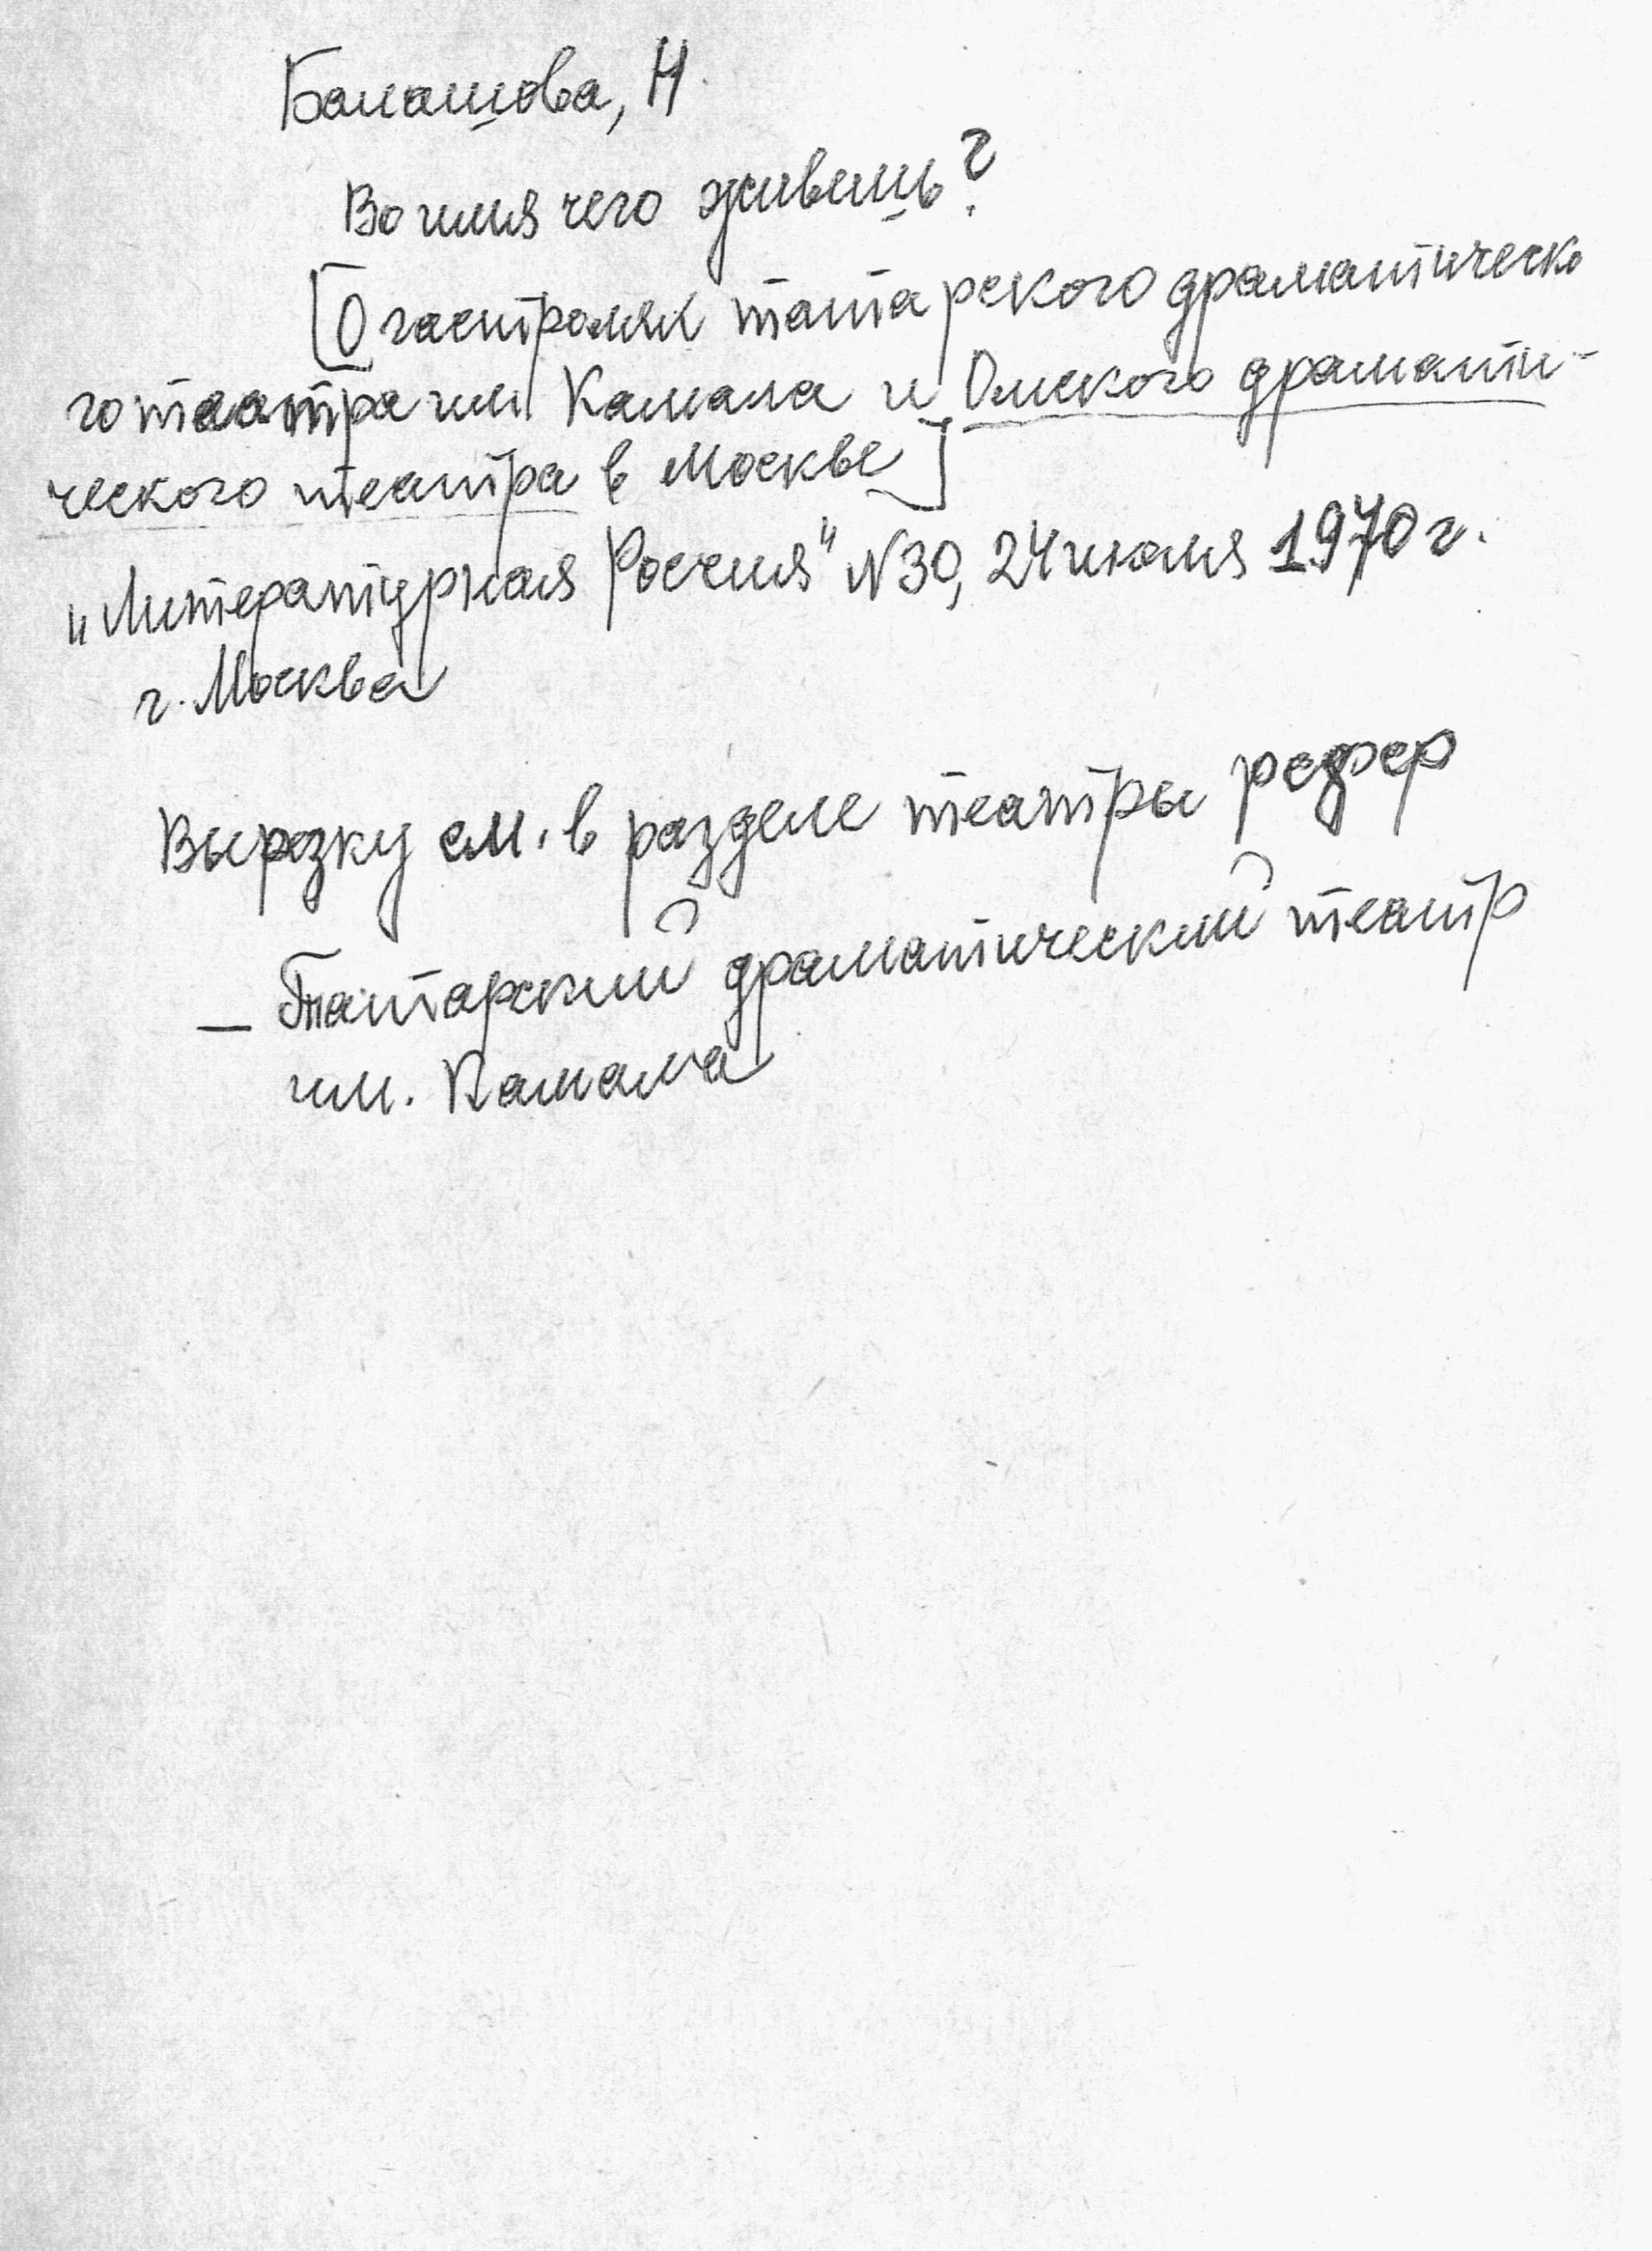 Балашова, Н.
Во имя чего живешь?
[О гастролях татарского драматическо
го театра им Камала и Омского драмати-
ческого театра в Москве]
"Литературная Россия" №30, 24 июля 1970 г.
г. Москва
Вырезку см. в разделе театры
— Татарский драматический театр
им. Камала